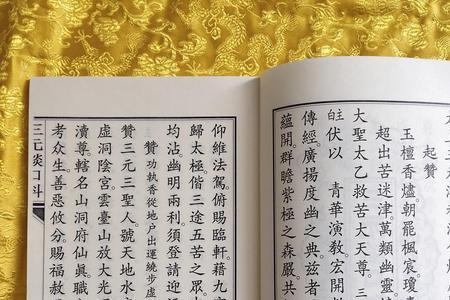 起贊
玉檀香爐。朝罷楓宸。瓊
超出苦迷津萬類幽靈
大聖太乙救苦大天尊。三
伏以 青華演教。宏開
傳經。廣揚度幽之典。茲者
蘊開。群瞻紫極之森嚴。共
仰維法駕。俯賜臨軒。藉九
歸太極。偕三途五苦之眾
均沾。幽明兩利。須登請迎
贊 功執香從地戶出運繞步虛
贊三元三聖人。號天地水
虛洞陰宮。雲臺山放大光
瀆尊。轄名山洞府仙真職
考眾生善惡攸分。賜福赦
三元燄口科